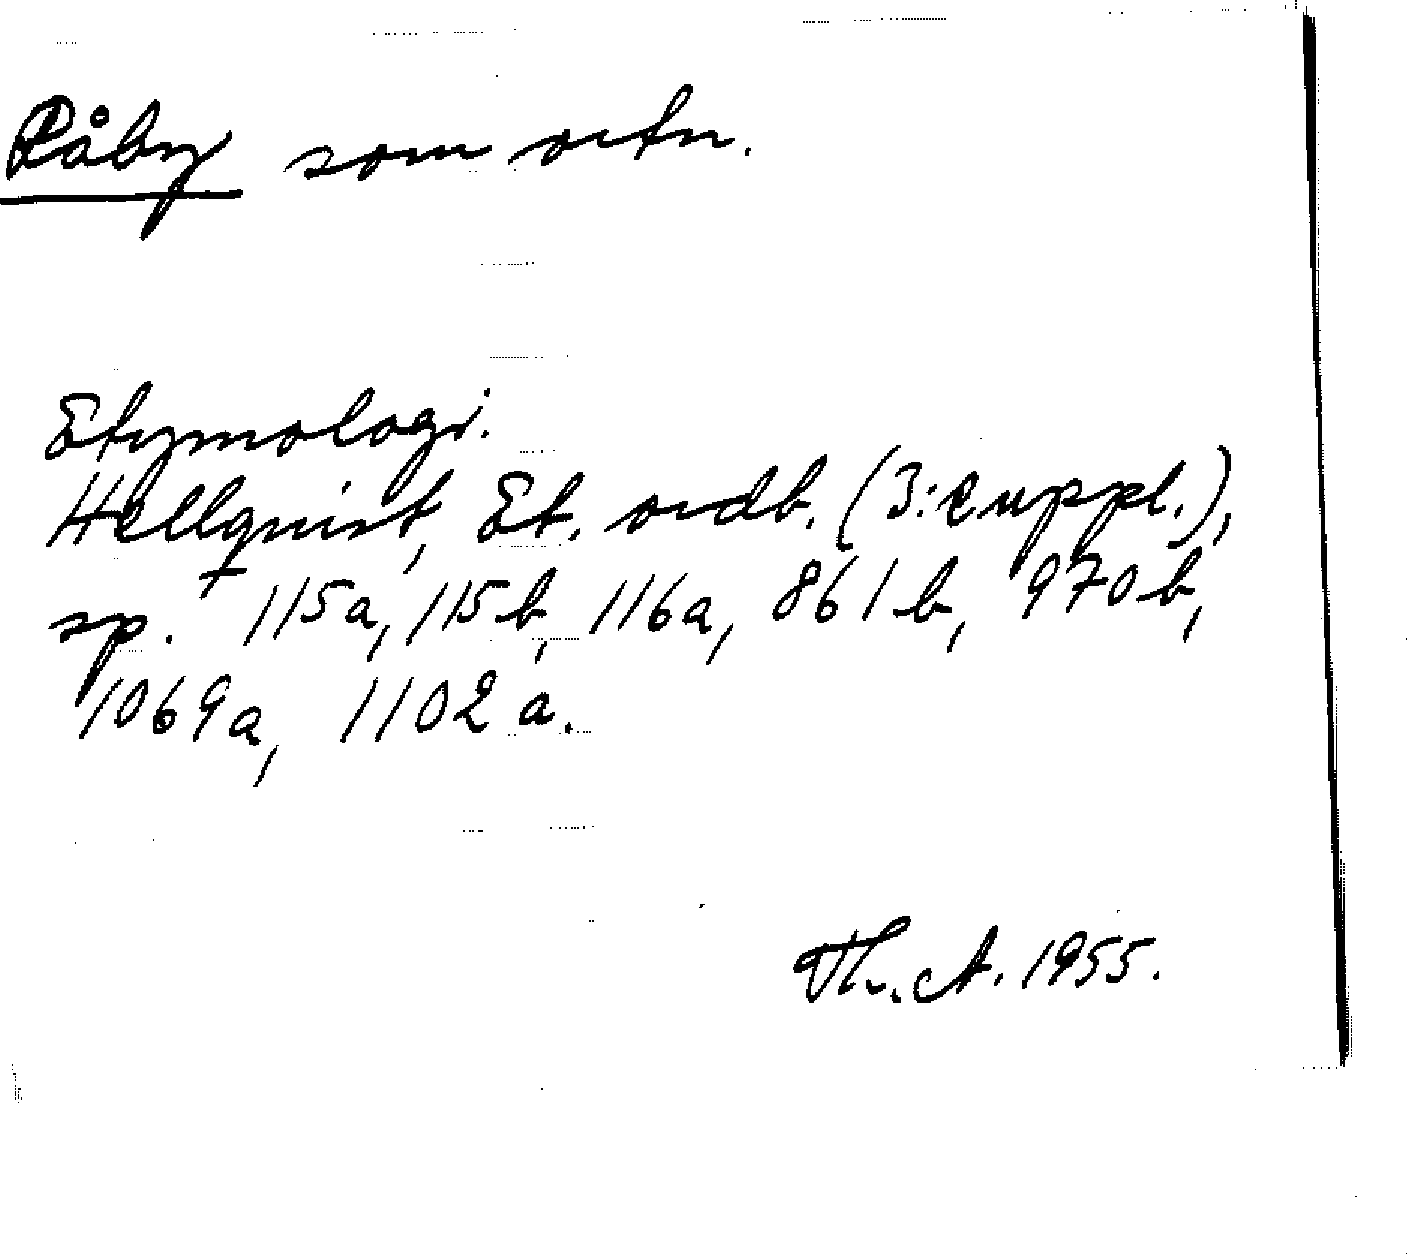 Råby som ortn.
Etymologi.
Hellquist, Et. ordb. (3:e uppl.),
sp. 115a, 115b, 116a, 861b, 970b,
1069a, 1102a.
Th. A. 1955.